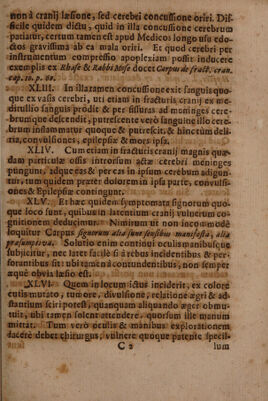 non à cranij læsione, sed cerebri concussione oriri. Dif-
ficile quidem dictu, quid in illa concussione cerebrum
patiatur, certum tamen est apud Medicos longo usu ed o-
ctos gravissima ab ea mala oriri. Et quod cerebri per
instrumentum compressio apoplexiam possit inducere
exemplis ex Rhase & Rabbi Mose docet Carpus de fract. cran.
cap. 10. p. 60.
XLIII. In illa tamen concussione exit sanguis quo-
que ex vasis cerebri, uti etiam in fracturis cranij ex me-
ditullio sanguis prodit & per fissuras ad meninges cere-
brumque descendit, putrescente verò sanguine illo cere-
brum inflammatur quoque & putrescit, & hinc tum deli-
ria, convulsiones, epilepsiæ & mors ipsa.
XLIV. Cum etiam in fracturis cranij magnis quæ-
dam particulæ ossis introrsum actæ cerebri meninges
pungunt, adque eas & per eas in ipsum cerebrum adigun-
tur, tum quidem præter dolorem in ipsa parte, convulsi-
ones & Epilepsiæ contingunt.
XLV. Et hæc quidem symptomata signorum quo-
que loco sunt, quibus in latentium cranij vulnerum co-
gnitionem deducimur. Nimirum ut non incommodè
loquitur Carpus signorum alia sunt sensibus manifesta, alia
præsumptiva. Solutio enim continui oculis manibusque
subjicitur, nec latet facilè si à rebus incidentibus & per-
forantibus sit: ubi tamen à contundentibus, non semper
æquè obvia læsio est.
XLVI. Quem in locum ictus inciderit, ex colore
cutis mutato, tumore, divulsione, relatione ægri & ad-
stantium sciri potest, quanquam aliquando æger obmu-
tuit, ubi tamen solent attendere, quorsum ille manum
mittat. Tum verò oculis & manibus explorationem
facere debet chirurgus, vulnere quoque patente specil-
C 2 lum